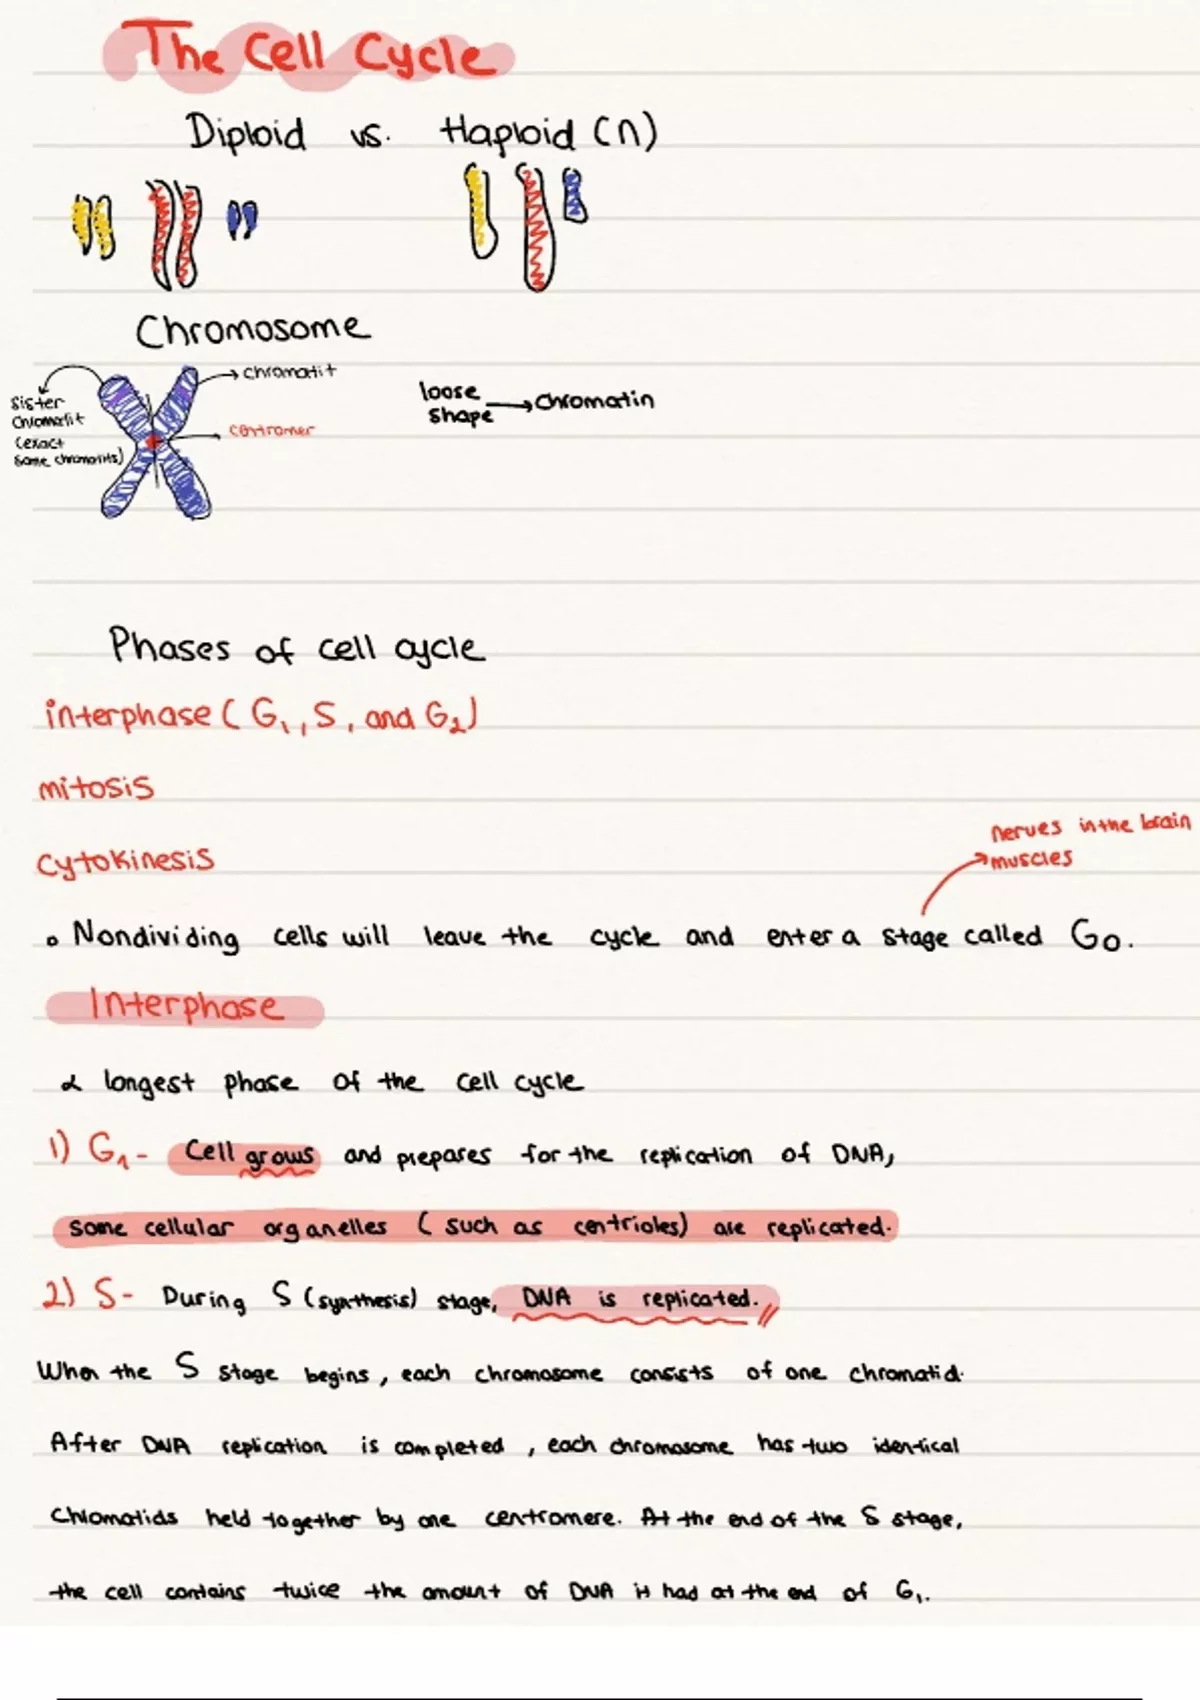 The Cell Cycle
Diploid vs. Haploid (n)
Chromosome
chromatit
Sister
Chromatit
(exact
same chromatits)
centromer
loose
shape → Chromatin
Phases of cell cycle
interphase ( G₁, S, and G₂)
mitosis
nerves in the brain
muscles
cytokinesis
Nondividing cells will leave the cycle and enter a stage called G0.
Interphase
longest phase of the cell cycle
1) G₁- Cell grows and prepares for the replication of DNA,
some cellular organelles ( such as centrioles) are replicated.
2) S- During S (synthesis) stage, DNA is replicated.
When the S stage begins, each chromosome consists of one chromatid.
After DNA replication is completed, each chromosome has two identical
chromatids held together by one centromere. At the end of the S stage,
the cell contains twice the amount of DNA it had at the end of G₁.